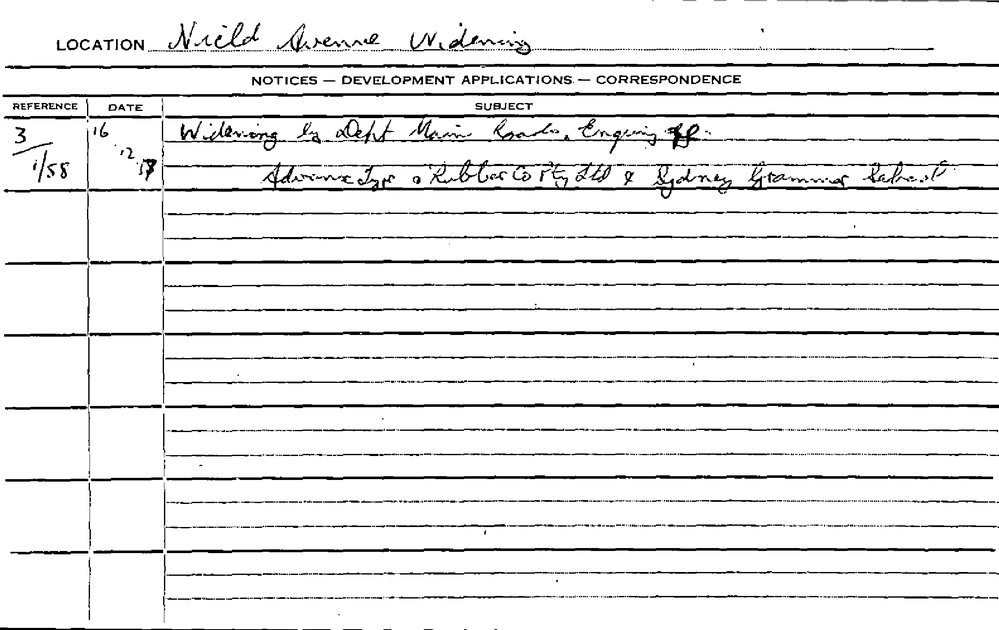 LOCATION Nield Avenue Widening
NOTICES — DEVELOPMENT APPLICATIONS — CORRESPONDENCE
REFERENCE DATE SUBJECT
3 16 Widening by Dept Main Roads. Enquiry
1/58 12 Advance Tyre & Rubber Co Pty Ltd & Sydney Grammar School